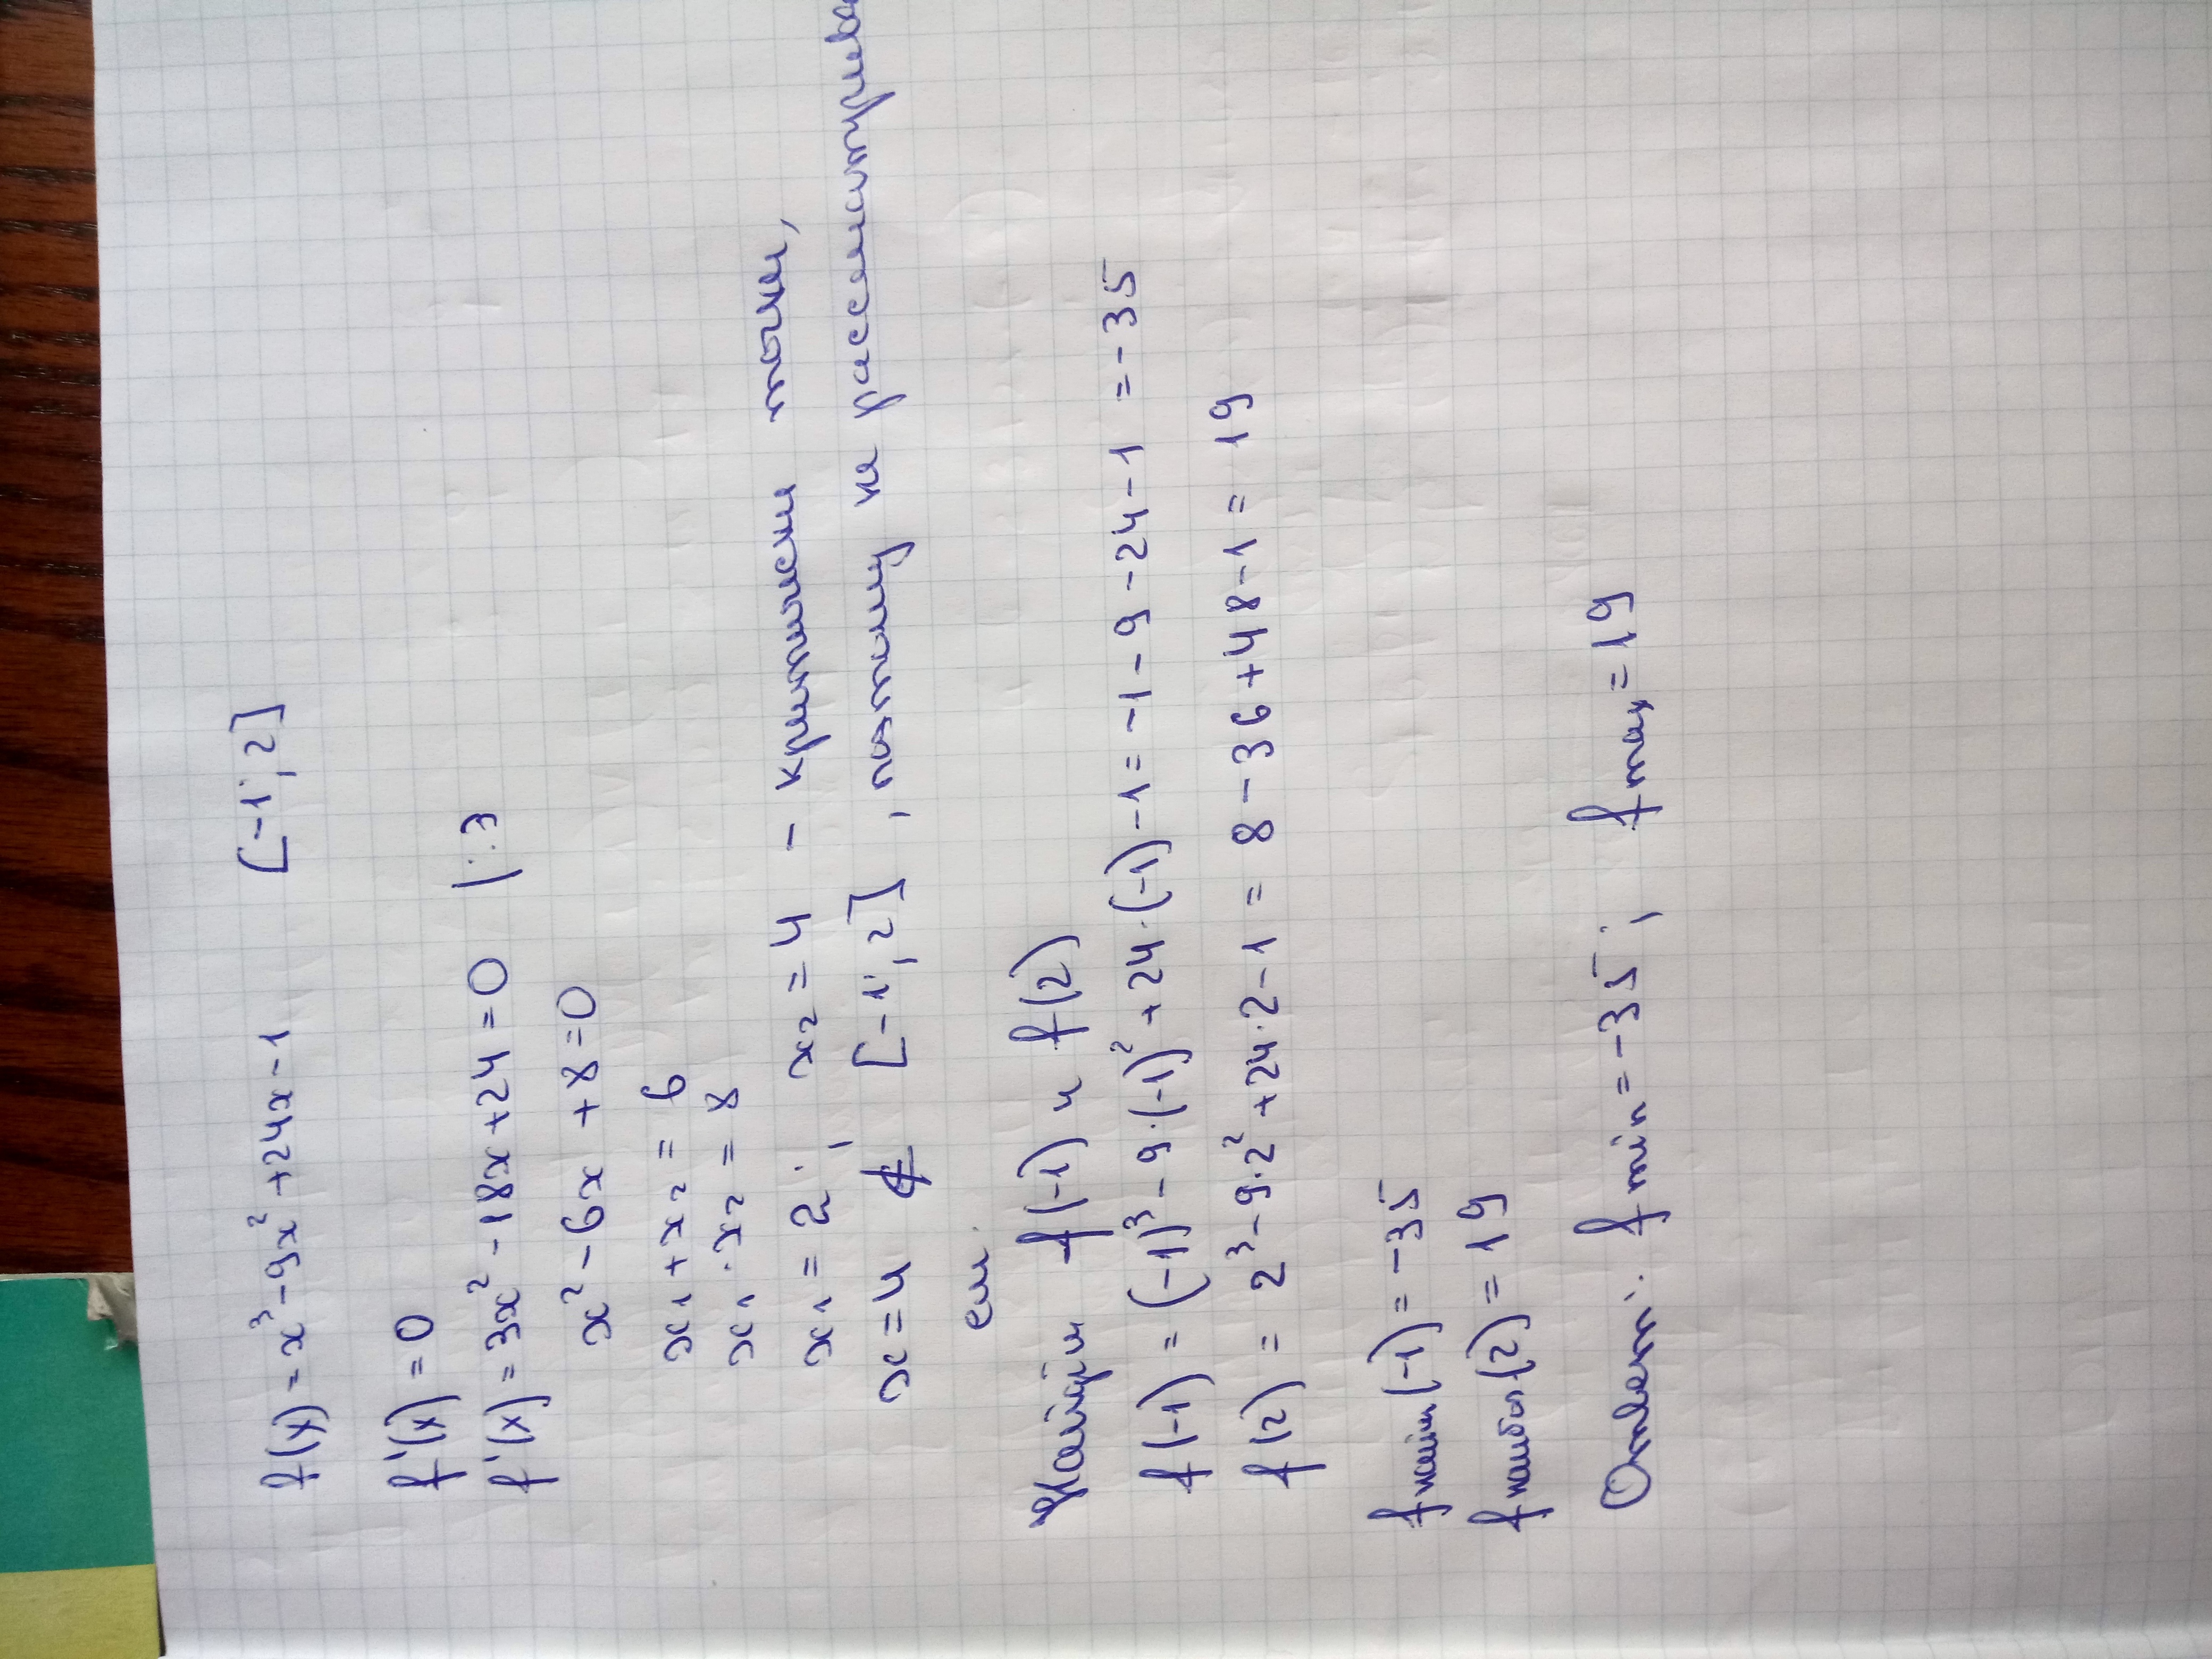 f(x) = x³ - 9x² + 24x - 1 [-1; 2]
f'(x) = 0
f'(x) = 3x² - 18x + 24 = 0 |:3
x² - 6x + 8 = 0
x₁ + x₂ = 6
x₁ · x₂ = 8
x₁ = 2; x₂ = 4 - критическ точки,
x = 4 ∉ [-1; 2], поэтому не рассматрива
ем.
Найдём f(-1) и f(2)
f(-1) = (-1)³ - 9·(-1)² + 24·(-1) - 1 = -1 - 9 - 24 - 1 = -35
f(2) = 2³ - 9·2² + 24·2 - 1 = 8 - 36 + 48 - 1 = 19
fнаим(-1) = -35
fнаиб(2) = 19
Ответ: fmin = -35; fmax = 19